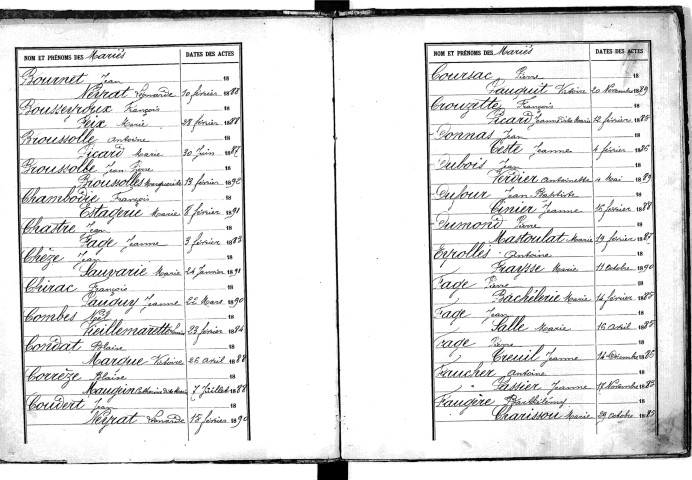 NOM ET PRÉNOMS DES Mariés DATES DES ACTES
Bournet Jean 18
Neyrat Léonarde 10 février 1888
Bousseyroux François 18
Prix Marie 28 février 1888
Broussolle Antoine 18
Picard Marie 30 Juin 1887
Broussolle Jean Pierre 18
Brousolles Marguerite 13 février 1892
Chambodie François 18
Estagerie Marie 8 février 1891
Chastre Jean 18
Page Jeanne 3 février 1883
Chèze Jean 18
Sauvarie Marie 24 Janvier 1891
Chirac François 18
Pauquy Jeanne 22 Mars 1890
Combes Noël 18
Vieillemarette 23 février 1884
Condat Blaise 18
Marque Victoire 26 Avril 1888
Corrèze Blaise 18
Maugein Catherine dite Marie 7 Juillet 1888
Coudert Jean 18
Neyrat Léonarde 18 février 1890
NOM ET PRÉNOMS DES Mariés DATES DES ACTES
Coursac Pierre 18
Pauquit Victoire 20 Novembre 1889
Crouzette François 18
Picard Jeanne dite Marie 12 février 1885
Donnas Jean 18
Ceste Jeanne 4 février 1886
Dubois Jean 18
Verdier Antoinette 4 Mai 1889
Dufour Jean Baptiste 18
Cinier Jeanne 16 février 1888
Dumond Pierre 18
Mastoulat Marie 19 février 1887
Eyrolles Antoine 18
Fraysse Marie 11 Octobre 1890
Fage Pierre 18
Bachèlerie Marie 14 février 1885
Fage Jean 18
Salle Marie 16 Avril 1885
Fage Pierre 18
Treuil Jeanne 14 Décembre 1886
Faucher Antoine 18
Lassier Jeanne 17 Novembre 1883
Faugère Barthélémy 18
Charissou Marie 29 Octobre 18